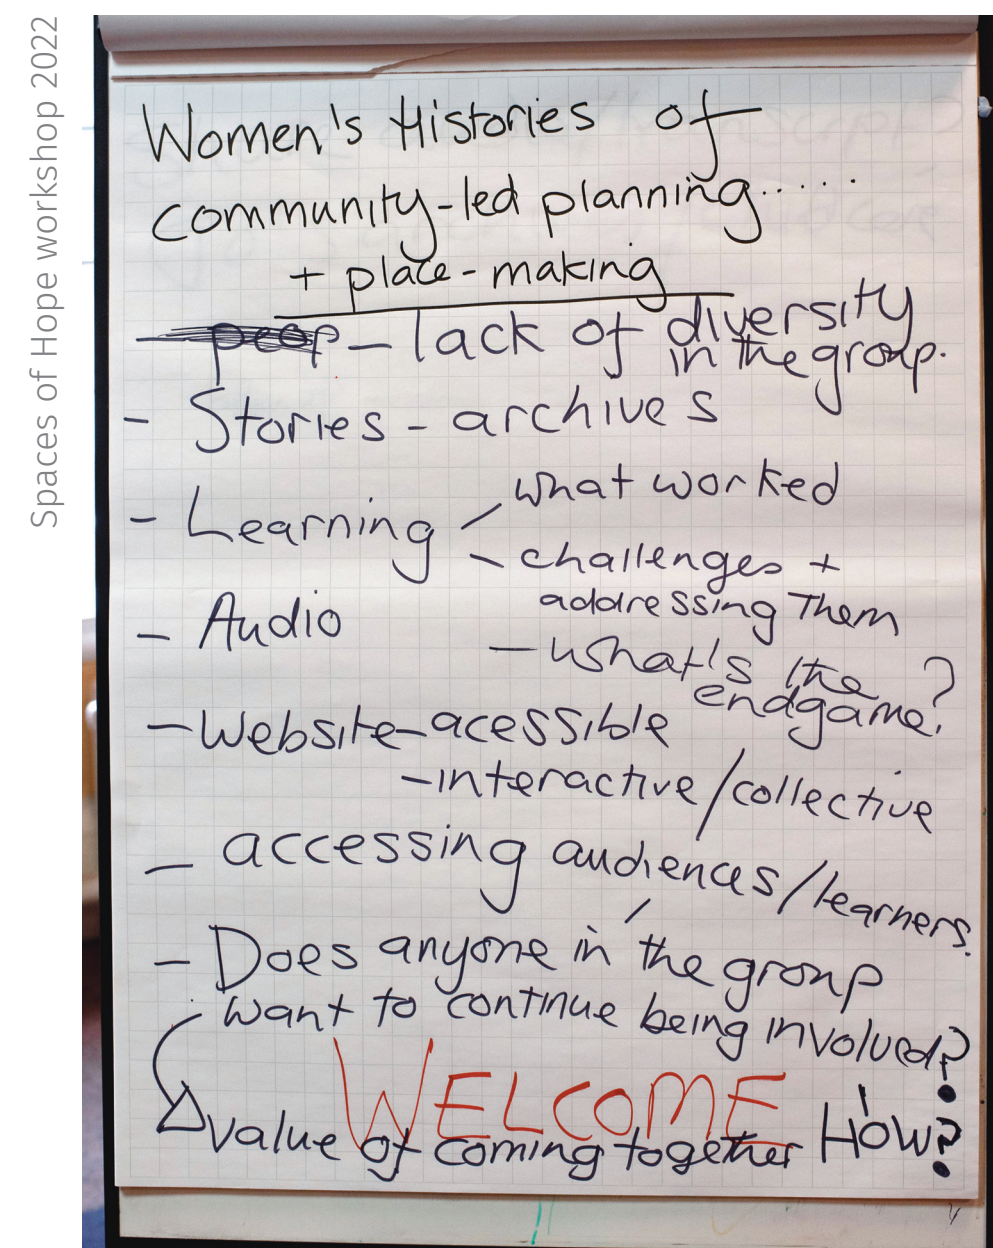 Spaces of Hope workshop 2022
Women's Histories of
community-led planning.....
+ place-making
- peop - lack of diversity
in the group.
- Stories - archives
- Learning - what worked
- challenges +
addressing them
- Audio
- what's the
endgame?
- Website - acessible
- interactive/collective
- accessing audiences/learners.
- Does anyone in the group
want to continue being involved?
WELCOME
value of coming together HOW?